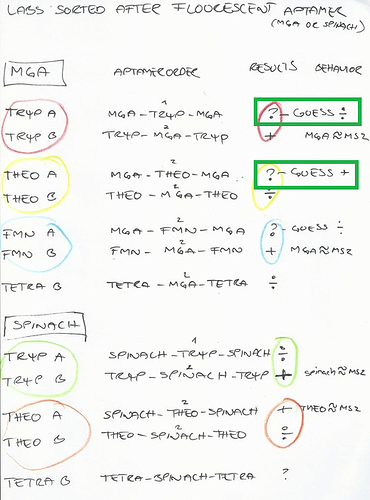 LABS SORTED AFTER FLOURESCENT APTAMER
(MGA OR SPINACH)
MGA APTAMERORDER RESULTS BEHAVIOR
TRYP A MGA-TRYP-MGA 1 ? - GUESS ÷
TRYP B TRYP-MGA-TRYP 2 + MGA≈MS2
THEO A MGA-THEO-MGA 2 ? - GUESS +
THEO B THEO-MGA-THEO 2 ÷
FMN A MGA-FMN-MGA 2 ? - GUESS ÷
FMN B FMN-MGA-FMN 2 + MGA≈MS2
TETRA B TETRA-MGA-TETRA 2 ÷
SPINACH
TRYP A SPINACH-TRYP-SPINACH 1 ÷
TRYP B TRYP-SPINACH-TRYP 2 + spinach≈MS2
THEO A SPINACH-THEO-SPINACH 2 + THEO≈MS2
THEO B THEO-SPINACH-THEO 2 ÷
TETRA B TETRA-SPINACH-TETRA ?